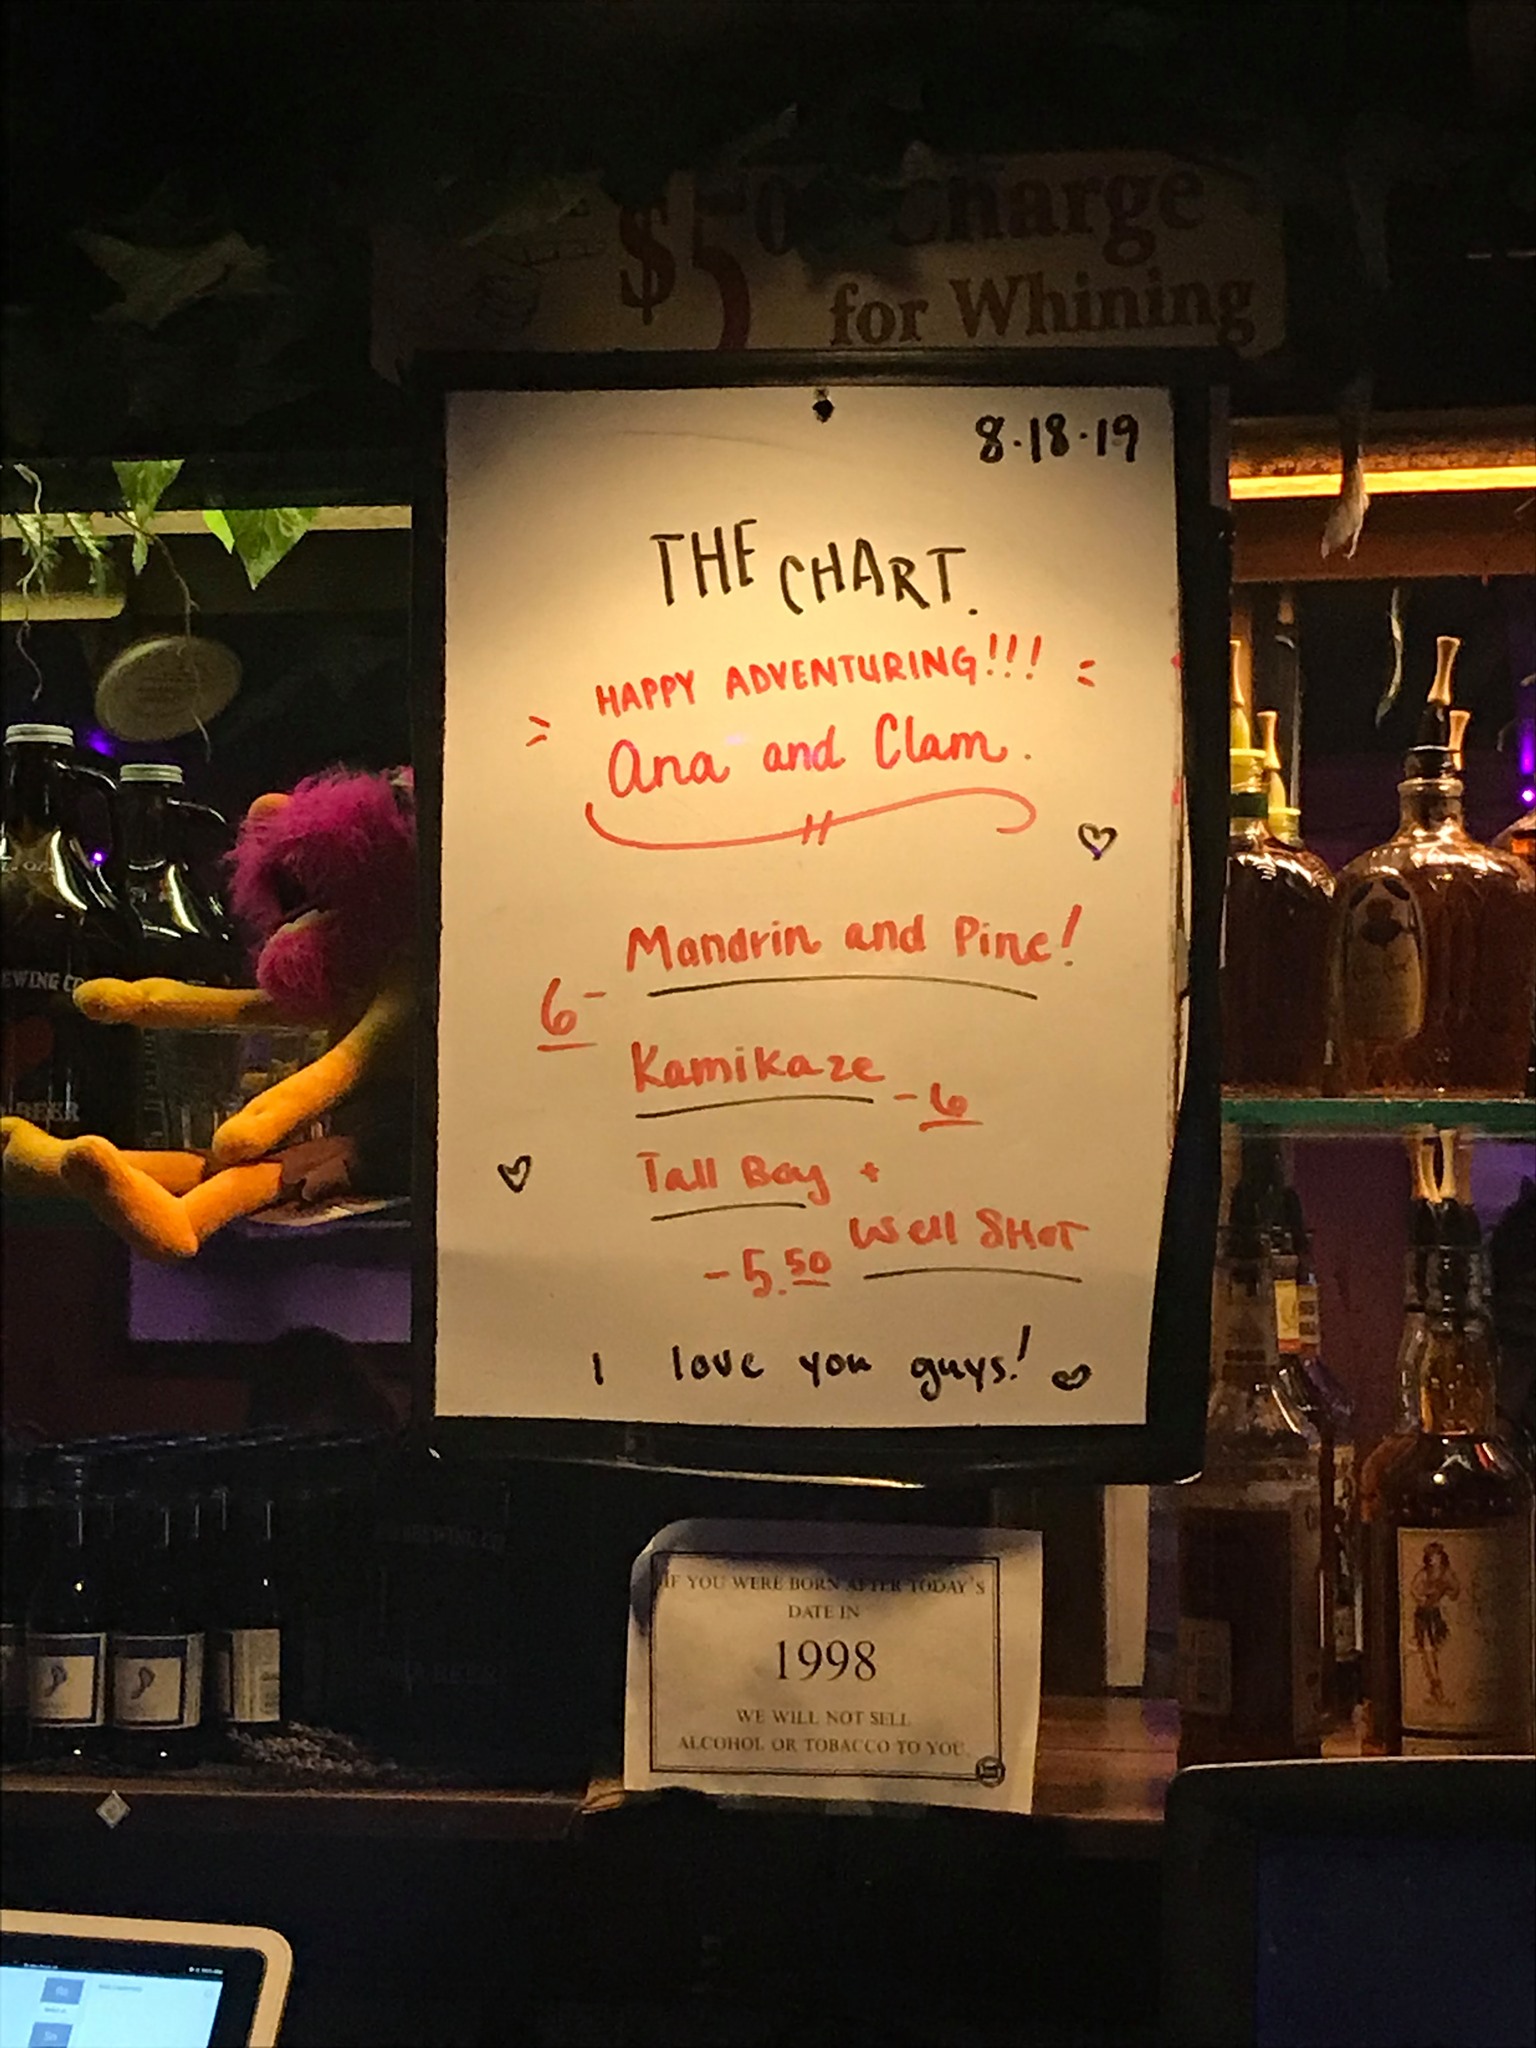 $5.00 Charge
for Whining
8·18·19
THE CHART.
HAPPY ADVENTURING!!!
Ana and Clam.
Mandrin and Pine!
6-
Kamikaze
-6
Tall Boy +
Well SHOT
-5.50
I love you guys!
EWING CO
BEER
IF YOU WERE BORN AFTER TODAY'S
DATE IN
1998
WE WILL NOT SELL
ALCOHOL OR TOBACCO TO YOU.